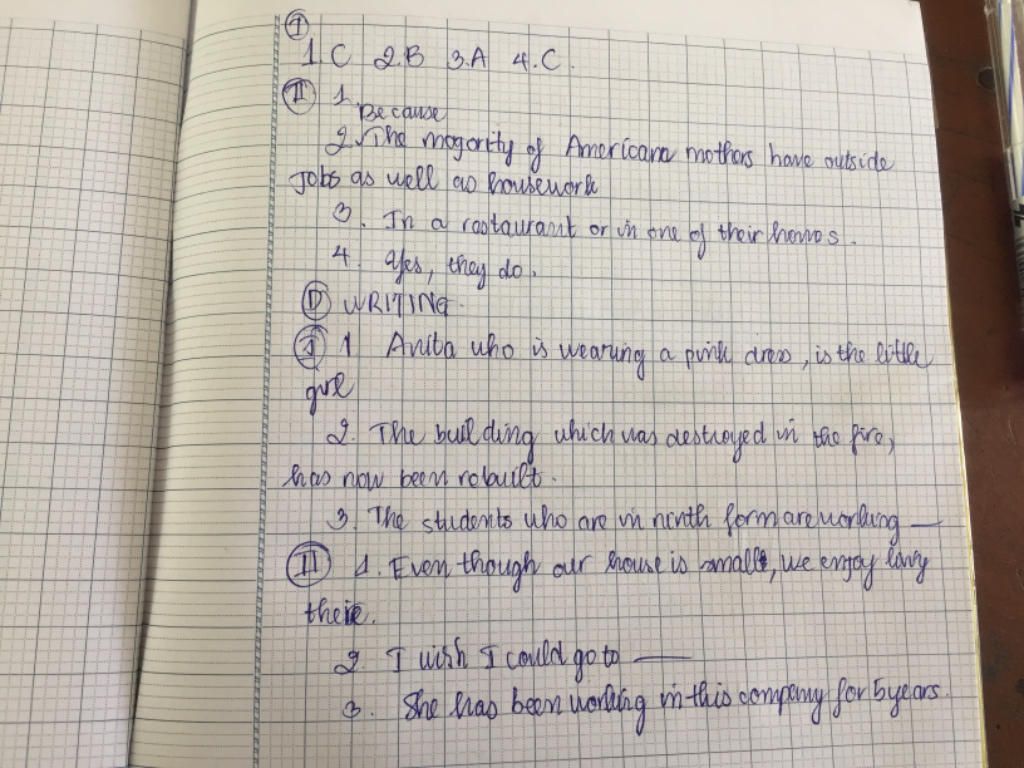 I
1. C 2. B 3. A 4. C.
II 1. Because
2. The mogority of Americana mothers have outside
Jobs as well as housework
3. In a restaurant or in one of their homes.
4. Yes, they do.
D WRITING.
I 1 Anita who is wearing a pink dress, is the little
girl
2. The building which was destroyed in the fire,
has now been robuilt.
3. The students who are in ninth form are working —
II 1. Even though our house is small, we enjoy living
there.
2. I wish I could go to —
3. She has been working in this company for 5 years.